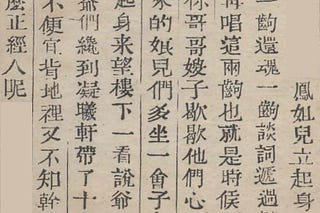 鳳姐兒立起身
一齣還魂一齣談詞遞過
再唱這兩齣也就是時候
你哥哥嫂子歇歇他們心
來的㚲兒們多坐一會子
起身来望樓下一看說爺
爺們纔到凝曦軒帶了十
不便宜背地裡又不知幹
麽正經人呢